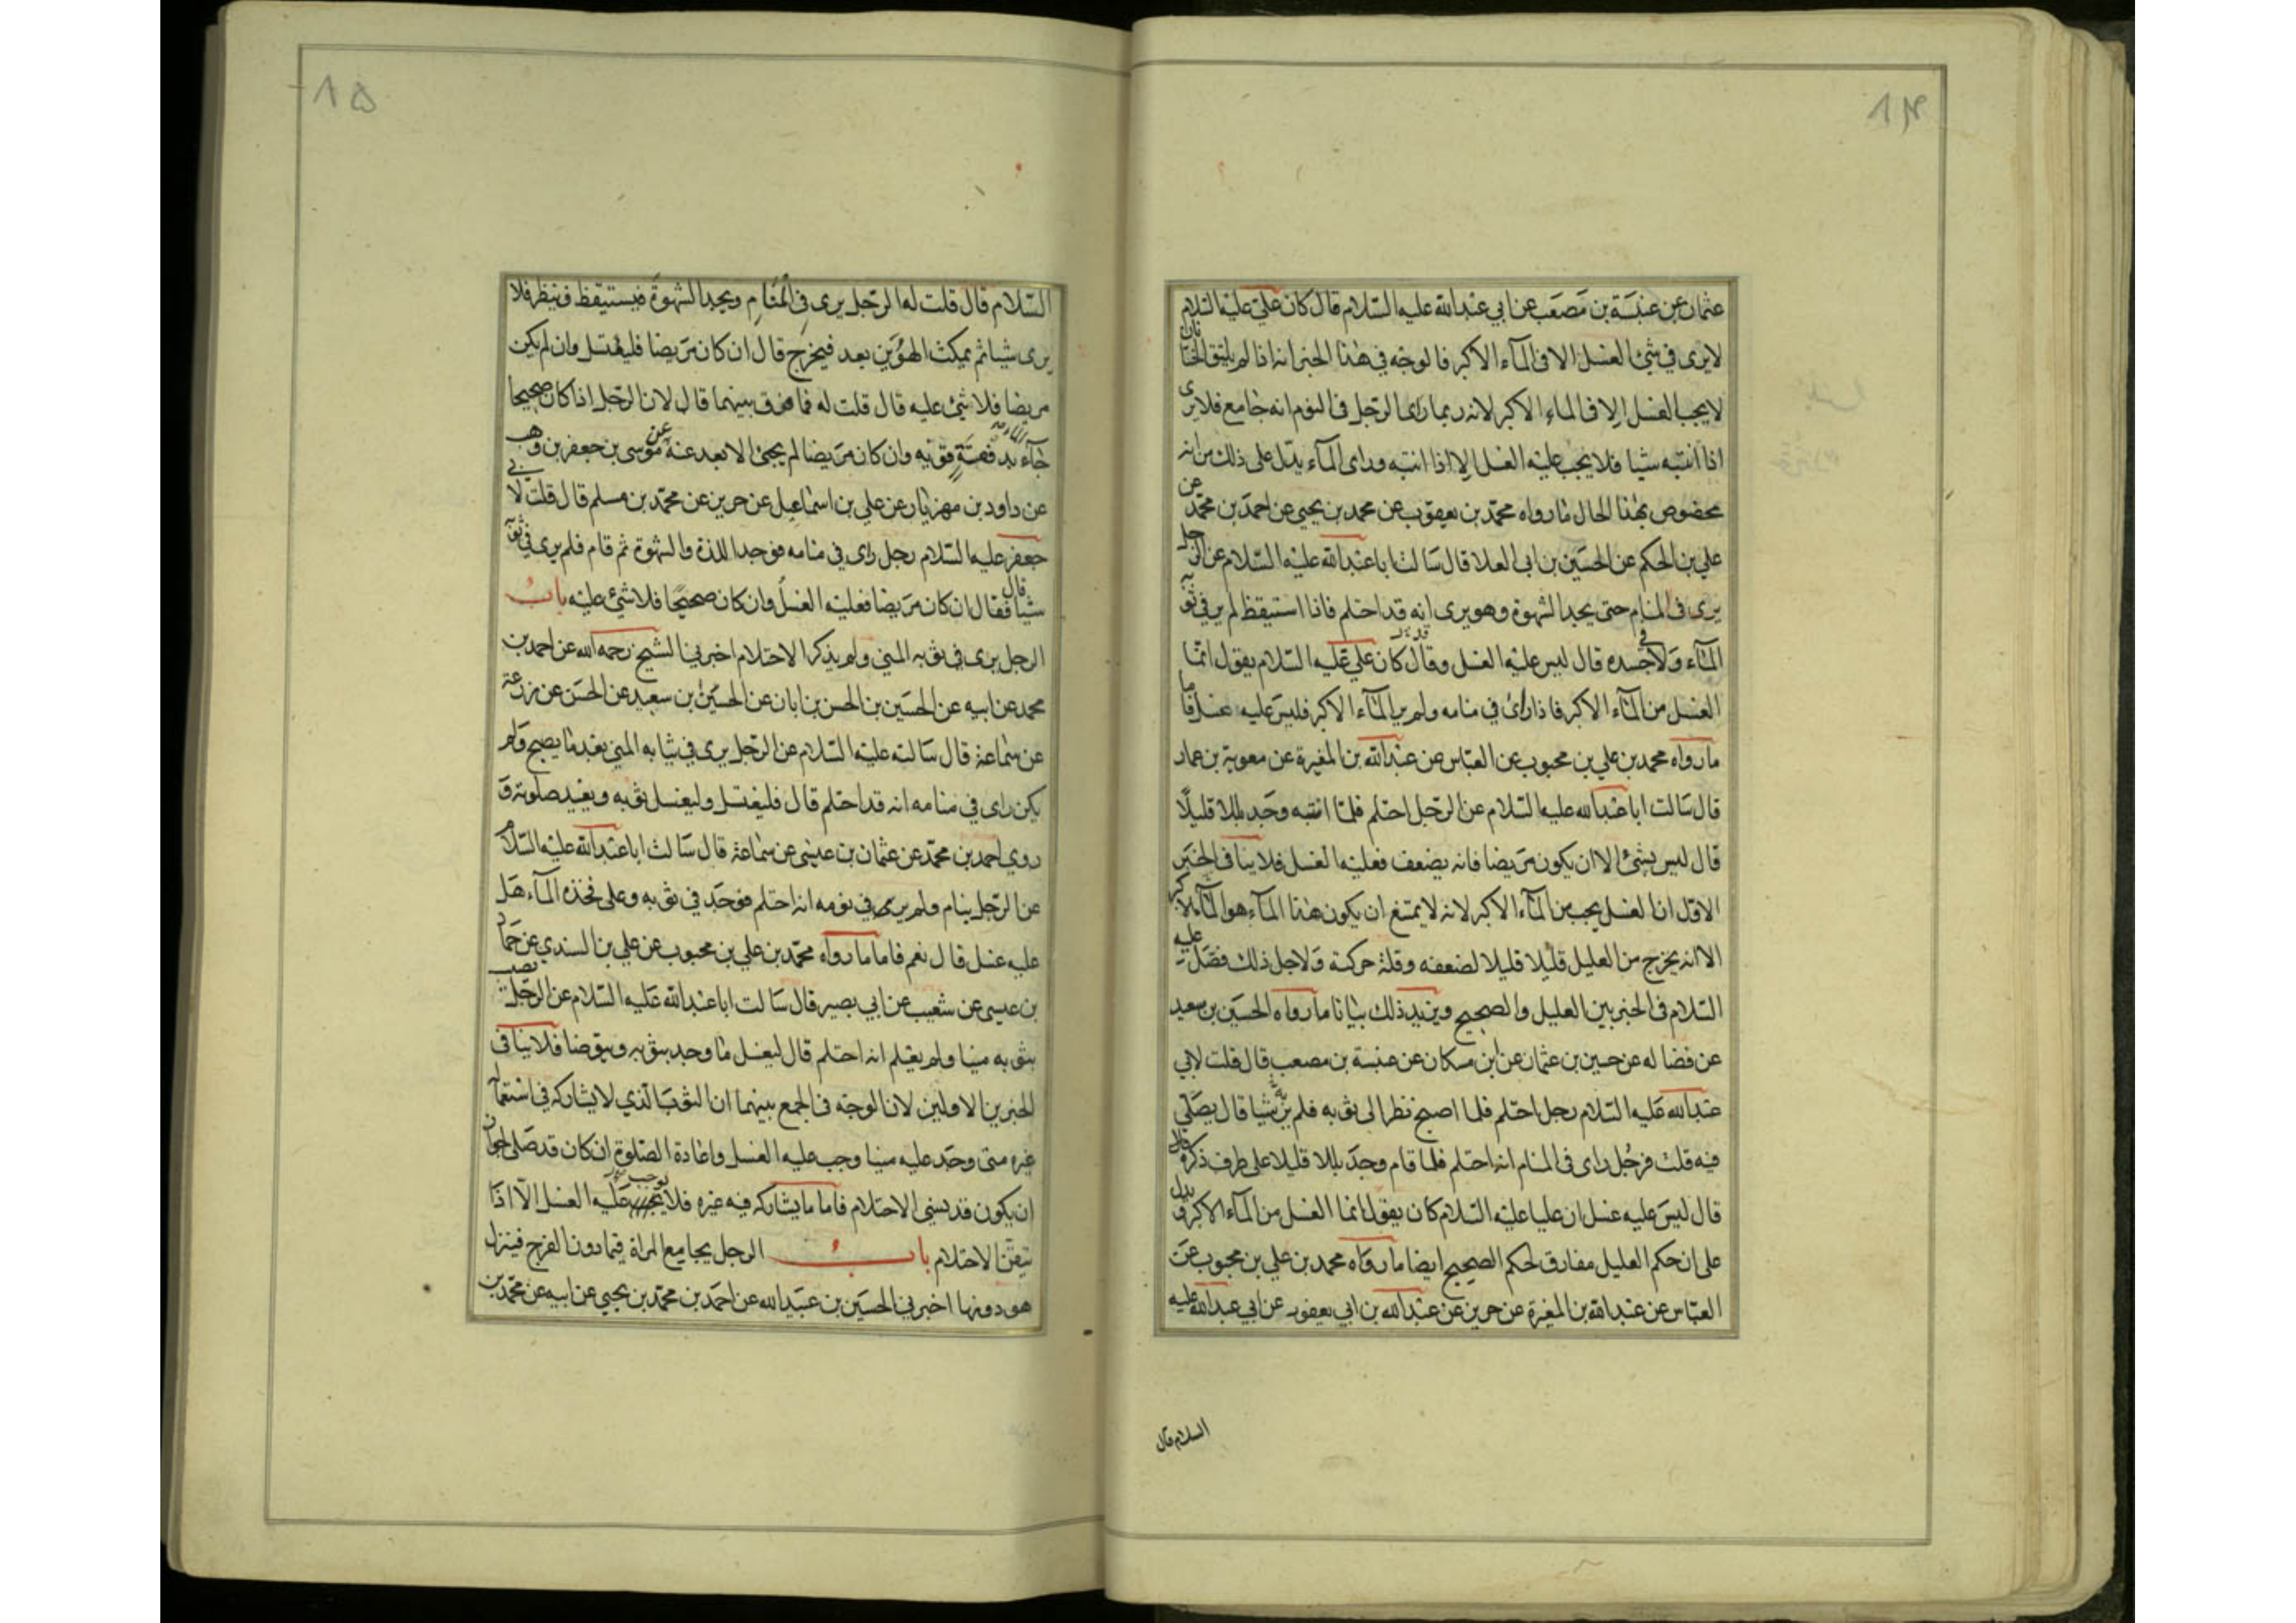 ٨٤
عثمان عن عنبسة بن مصعب عن ابي عبدالله عليه السلام قال كان علي عليه السلام
لايرى في شئ الغسل الا فى المآء الاكبر فالوجه في هذا الخبر انه اذا لم يلتق الختانان
لايجب الغسل الا في الماء الاكبر لانه ربما راى الرجل فى النوم انه جامع فلايرى
اذا انتبه شيا فلا يجب عليه الغسل الا اذا انتبه وراى المآء يدل على ذلك من انه
مخصوص بهذا الحال ما رواه محمد بن يعقوب عن محمد بن يحيى عن احمد بن محمد عن
علي بن الحكم عن الحسين بن ابى العلا قال سالت ابا عبدالله عليه السلام عن الرجل
يرى فى المنام حتى يجد الشهوة وهو يرى انه قد احتلم فاذا استيقظ لم ير في ثوبه
المآء ولا في جسده قال ليس عليه الغسل وقال كان علي عليه السلام يقول انما
الغسل من المآء الاكبر فاذا راى في منامه ولم ير المآء الاكبر فليس عليه غسل فاما
ما رواه محمد بن علي بن محبوب عن العباس عن عبدالله بن المغيرة عن معوية بن عمار
قال سالت ابا عبدالله عليه السلام عن الرجل احتلم فلما انتبه وجد بللا قليلًا
قال ليس بشئ الا ان يكون مريضا فانه يضعف فعليه الغسل فلا ينافى الخبر
الاول ان الغسل يجب من المآء الاكبر لانه لايمتنع ان يكون هذا المآء هو المآء الاكبر
الا انه يخرج من العليل قليلا قليلا لضعفه وقلة حركته ولاجل ذلك فصل عليه
السلام فى الخبر بين العليل والصحيح ويزيد ذلك بيانا ما رواه الحسين بن سعيد
عن فضاله عن حسين بن عثمان عن ابن مسكان عن عنبسة بن مصعب قال قلت لابي
عبدالله عليه السلام رجل احتلم فلما اصبح نظر الى ثوبه فلم ير به شيا قال يصلي
فيه قلت فرجُل راى فى المنام انه احتلم فلما قام وجد بللا قليلا على طرف ذكره قال
قال ليس عليه غسل ان عليا عليه السلام كان يقول انما الغسل من المآء الاكبر ويدل
على ان حكم العليل مفارق لحكم الصحيح ايضا ما رواه محمد بن علي بن محبوب عن
العباس عن عبدالله بن المغيرة عن حريز عن عبدالله بن ابي يعفور عن ابي عبدالله عليه
السلام قال
٨٥
السلام قال قلت له الرجل يرى في المنام ويجد الشهوة فيستيقظ فينظر فلا
يرى شيا ثم يمكث الهوين بعد فيخرج قال ان كان مريضا فليغتسل وان لم يكن
مريضا فلا شئ عليه قال قلت له فما فرق بينهما قال لان الرجل اذا كان صحيحا
جآء بدفعةٍ قويه وان كان مريضا لم يجئ الا بعد عنه عن موسى بن جعفر بن وهب
عن داود بن مهزيار عن علي بن اسماعيل عن حريز عن محمد بن مسلم قال قلت لابي
جعفر عليه السلام رجل راى في منامه فوجد اللذة والشهوة ثم قام فلم يرى في ثوبه
شيا قال فقال ان كان مريضا فعليه الغسل وان كان صحيحًا فلا شئ عليه باب
الرجل يرى في ثوبه المني ولم يذكر الاحتلام اخبرني الشيخ رحمه الله عن احمد بن
محمد عن ابيه عن الحسين بن الحسن بن ابان عن الحسين بن سعيد عن الحسن عن زرعة
عن سماعة قال سالته عليه السلام عن الرجل يرى في ثيابه المني بعد ما يصبح ولم
يكن راى في منامه انه قد احتلم قال فليغتسل وليغسل ثوبه ويعيد صلوته و
روى احمد بن محمد عن عثمان بن عيسى عن سماعة قال سالت ابا عبدالله عليه السلام
عن الرجل ينام ولم يرى في نومه انه احتلم فوجد في ثوبه وعلى فخذه المآء هل
عليه غسل قال نعم فاما ما رواه محمد بن علي بن محبوب عن علي بن السندي عن حماد
بن عيسى عن شعيب عن ابي بصير قال سالت ابا عبدالله عليه السلام عن الرجل يصيب
بثوبه منيا ولم يعلم انه احتلم قال ليغسل ما وجد بثوبه ويتوضا فلا ينافى
الخبرين الاولين لان الوجه فى الجمع بينهما ان الثوب الذي لايشاركه فى استعماله
غيره متى وجد عليه منيا وجب عليه الغسل واعادة الصلوة ان كان قد صلى لجواز
ان يكون قد نسى الاحتلام فاما ما يشاركه فيه غيره فلا يوجب عليه الغسل الا اذا
تيقن الاحتلام باب الرجل يجامع المراة فيما دون الفرج فينزل
هو دونها اخبرني الحسين بن عبيدالله عن احمد بن محمد بن يحيى عن ابيه عن محمد بن